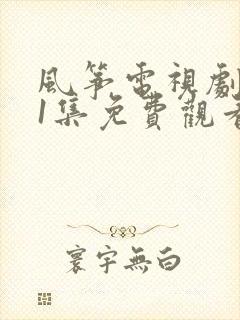 風箏電視劇
1集免費觀看
寰宇無白